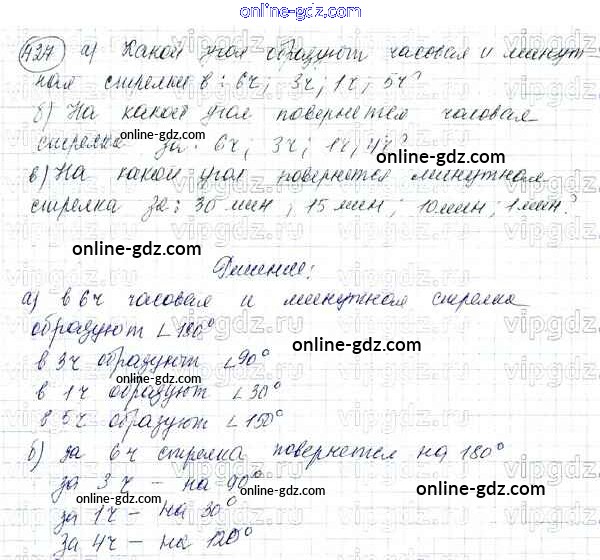 online-gdz.com
427 а) Какой угол образуют часовая и минут-
ная стрелки в: 6ч; 3ч; 1ч; 5ч?
б) На какой угол повернется часовая
стрелка за: 6ч; 3ч; 1ч; 4ч?
online-gdz.com
online-gdz.com
в) На какой угол повернется минутная
стрелка за: 30 мин; 15 мин; 10 мин; 1 мин?
online-gdz.com
online-gdz.com
Решение:
а) в 6ч часовая и минутная стрелка
образуют ∠180°
online-gdz.com
в 3ч образуют ∠90°
online-gdz.com
в 1ч образуют ∠30°
в 5ч образуют ∠150°
б) за 6ч стрелка повернется на 180°
за 3ч – на 90°
online-gdz.com
online-gdz.com
за 1ч – на 30°
за 4ч – на 120°
online-gdz.com
vipgdz.ru